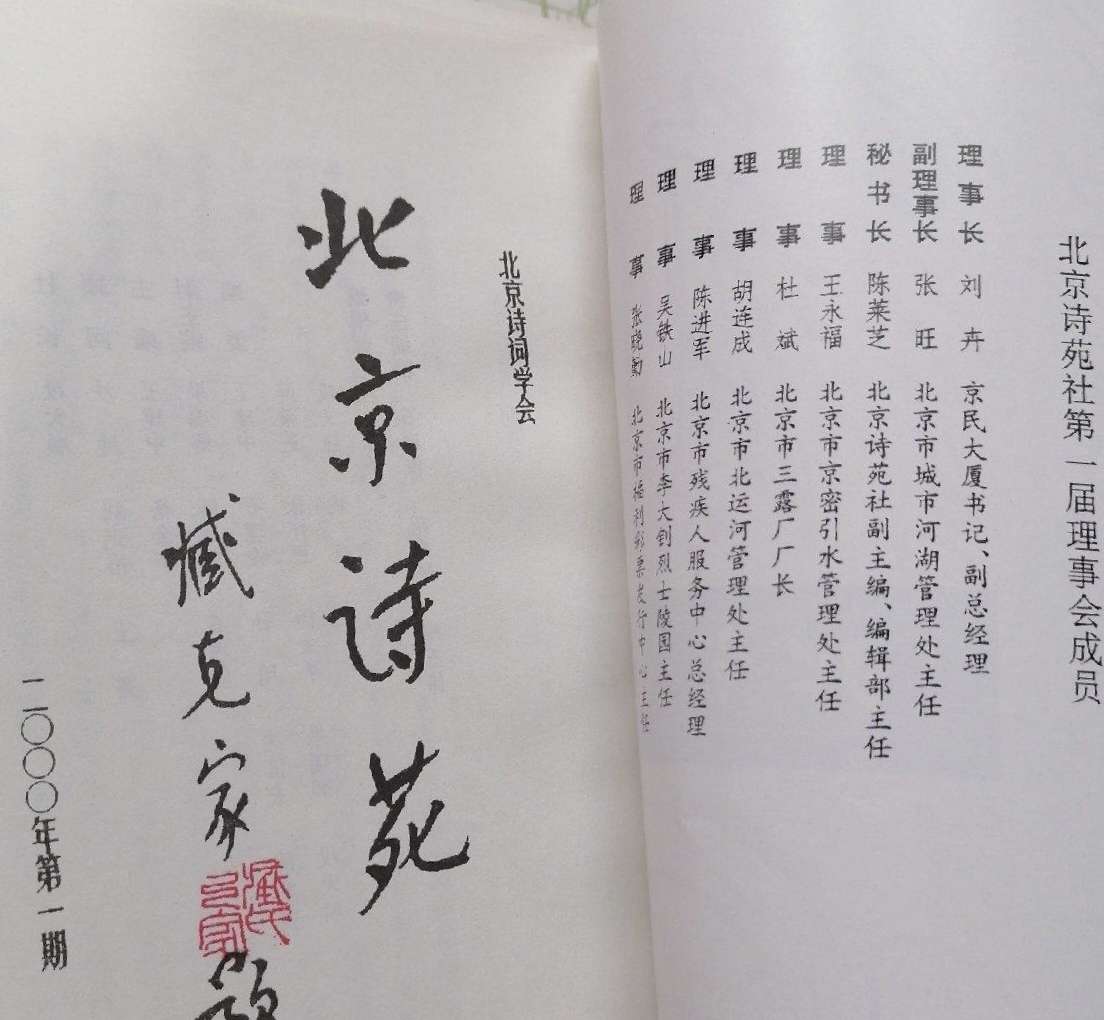 北京诗苑社第一届理事会成员
理事长 刘卉 京民大厦书记、副总经理
副理事长 张旺 北京市城市河湖管理处主任
秘书长 陈莱芝 北京诗苑社副主编、编辑部主任
理事 王永福 北京市京密引水管理处主任
理事 杜斌 北京市三露厂厂长
理事 胡连成 北京市北运河管理处主任
理事 陈进军 北京市残疾人服务中心总经理
理事 吴铁山 北京市李大钊烈士陵园主任
理事 张晓勤 北京市福利彩票发行中心主任
北京诗词学会
北京诗苑
臧克家
二〇〇〇年第一期